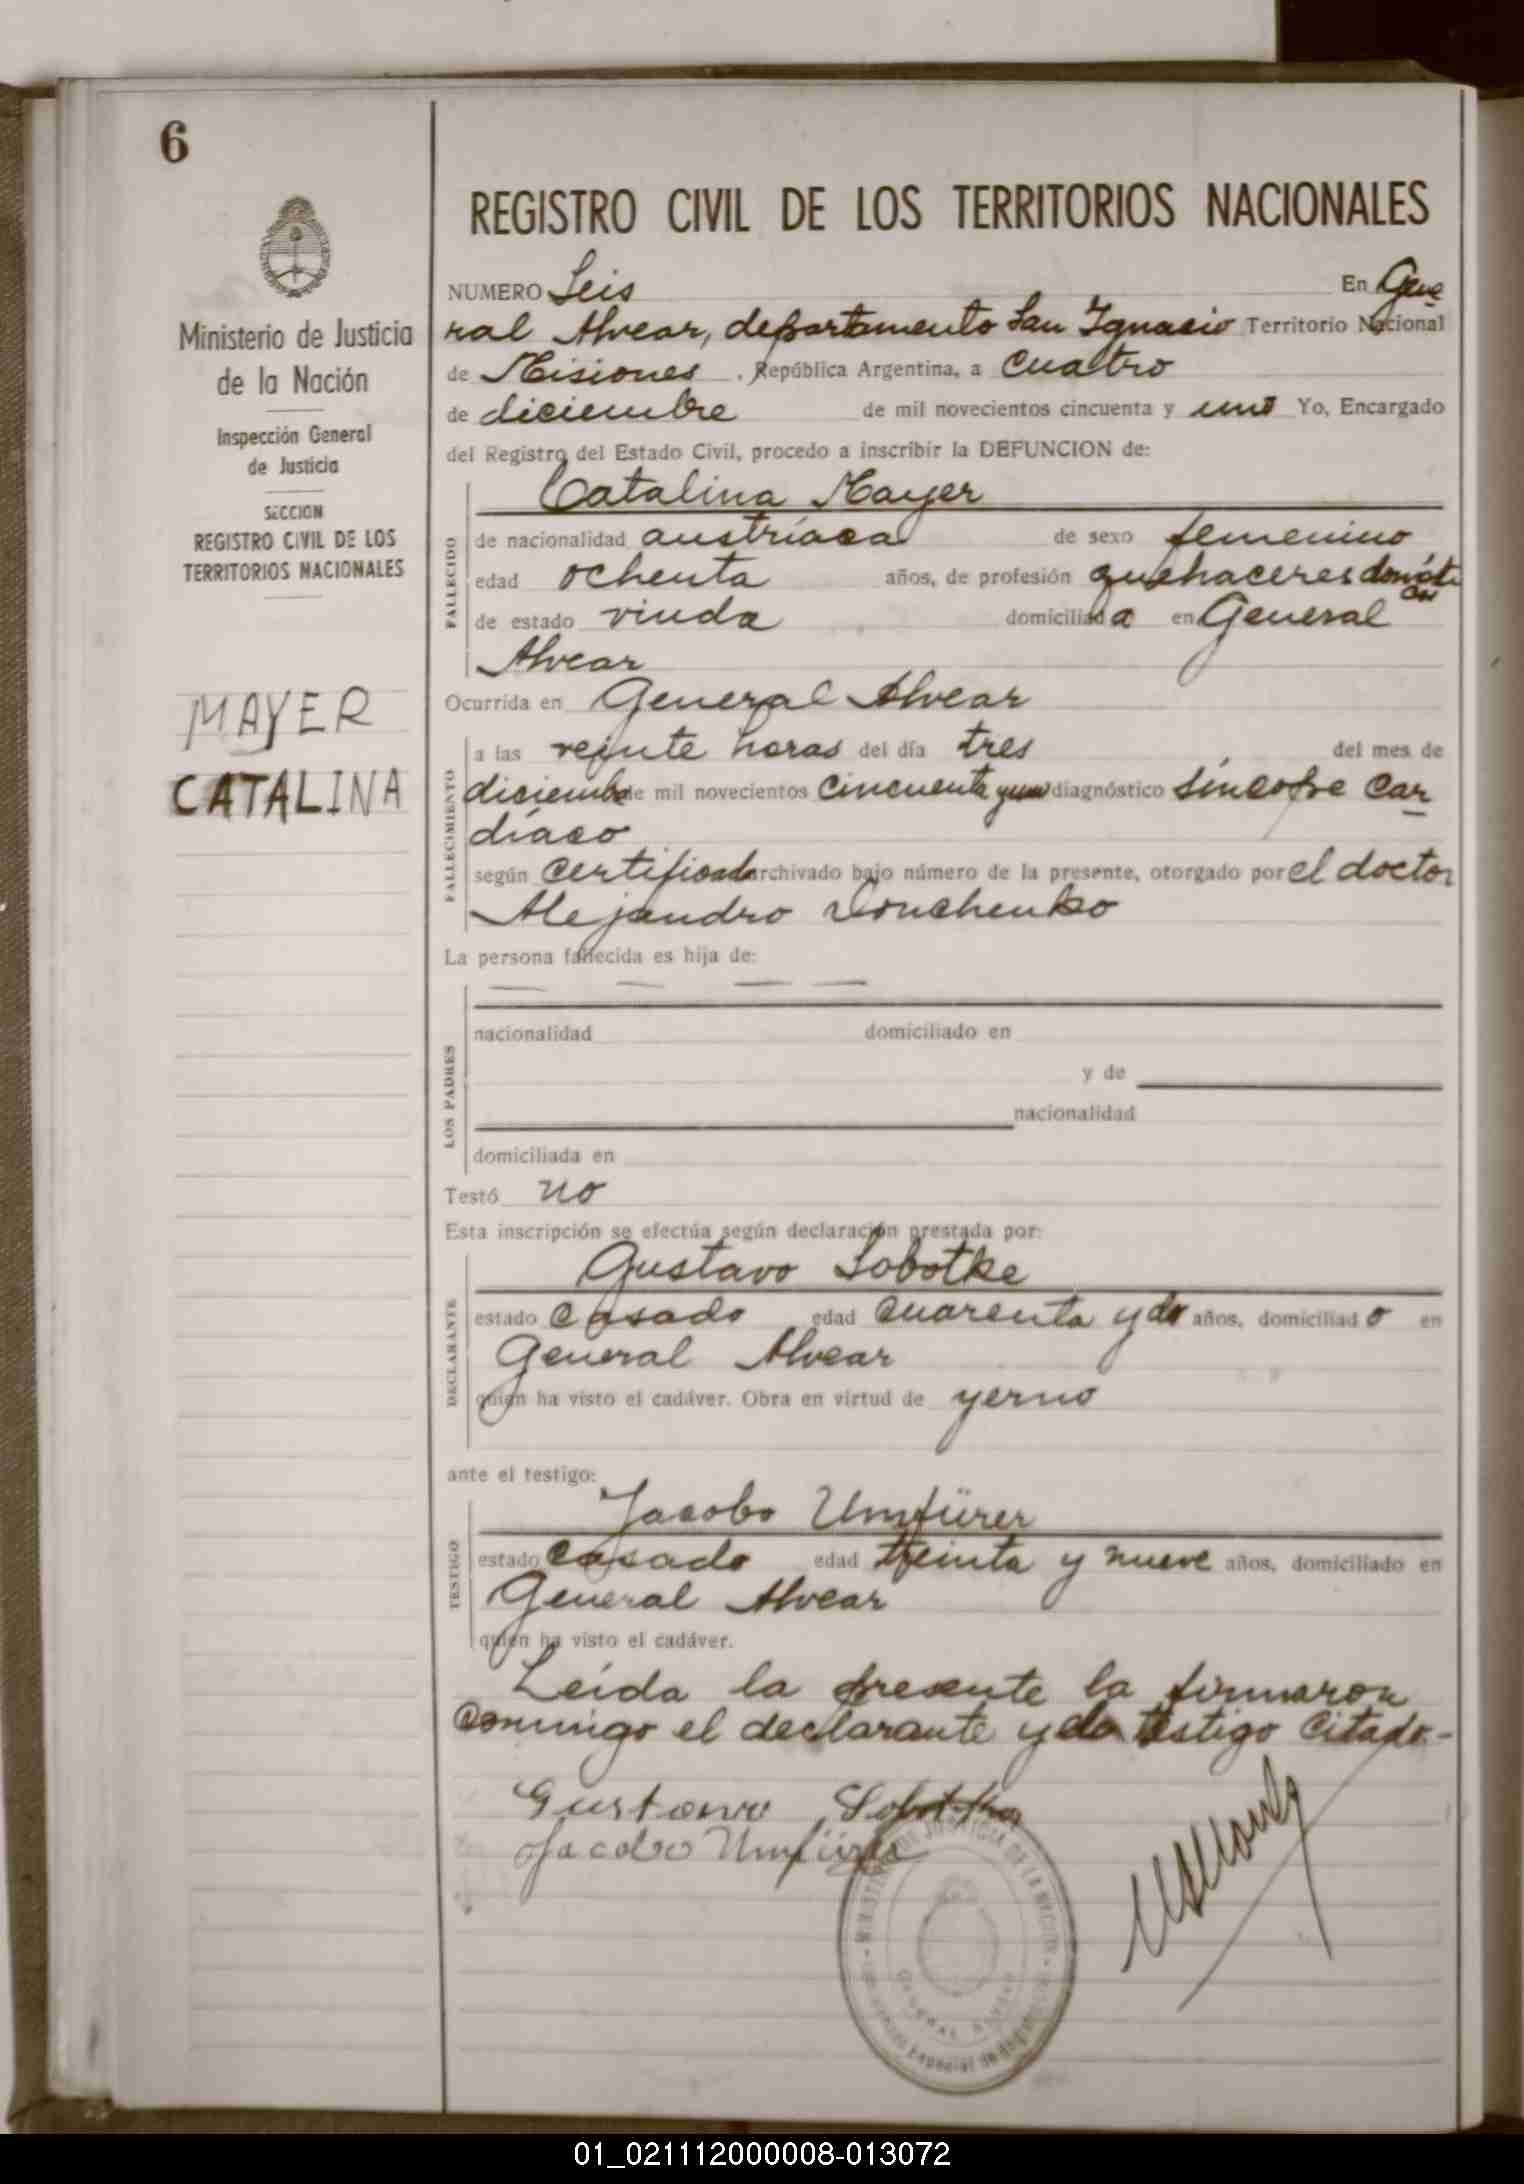 6
REGISTRO CIVIL DE LOS TERRITORIOS NACIONALES
Ministerio de Justicia
de la Nación
Inspección General
de Justicia
SECCION
REGISTRO CIVIL DE LOS
TERRITORIOS NACIONALES
MAYER
CATALINA
NUMERO Seis En Gene
ral Alvear, departamento San Ignacio Territorio Nacional
de Misiones . República Argentina, a cuatro
de diciembre de mil novecientos cincuenta y uno Yo, Encargado
del Registro del Estado Civil, procedo a inscribir la DEFUNCION de:
FALLECIDO
Catalina Mayer
de nacionalidad austríaca de sexo femenino
edad ochenta años, de profesión quehaceres domésti
cos
de estado viuda domiciliada en General
Alvear
Ocurrida en General Alvear
FALLECIMIENTO
a las veinte horas del día tres del mes de
diciembre de mil novecientos cincuenta y uno diagnóstico síncope car
díaco
según certificado archivado bajo número de la presente, otorgado por el doctor
Alejandro
La persona fallecida es hija de:
LOS PADRES
— — — —
nacionalidad domiciliado en
y de
nacionalidad
domiciliada en
Testó no
Esta inscripción se efectúa según declaración prestada por:
DECLARANTE
Gustavo Sobotke
estado casado edad cuarenta y dos años, domiciliado en
General Alvear
quien ha visto el cadáver. Obra en virtud de yerno
ante el testigo:
TESTIGO
Jacobo Umfürer
estado casado edad treinta y nueve años, domiciliado en
General Alvear
quien ha visto el cadáver.
Leída la presente la firmaron
conmigo el declarante y el testigo citado.-
Gustavo
Jacobo Umfürer
MINISTERIO DE JUSTICIA DE LA NACION
General Alvear
01_021112000008-013072